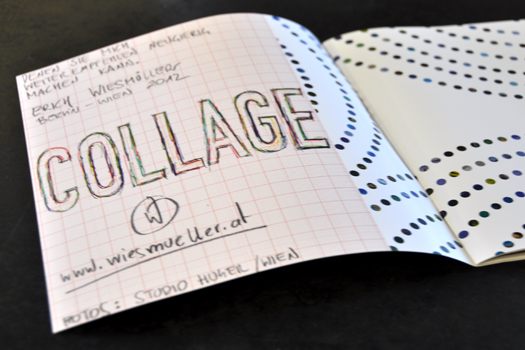 VENEN SIE MICH
WEITEREMPFEHLEN NEUGIERIG
MACHEN KANN.
ERICH WIESMÜLLER
BERLIN - WIEN 2012
COLLAGE
W
www.wiesmueller.at
FOTOS: STUDIO HUGER/WIEN